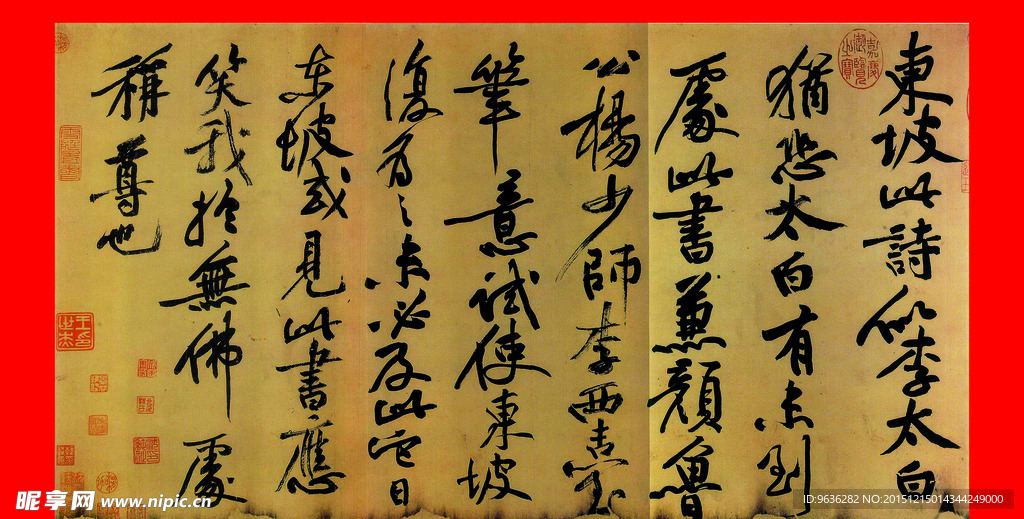 東坡此詩似李太白
猶恐太白有未到
處此書兼顏魯
公楊少師李西臺
筆意試使東坡
復為之未必及此它日
東坡或見此書應
笑我於無佛處
稱尊也
嘉慶御覽之寶
昵享网 www.nipic.cn
ID:9636282 NO:20151215014344249000